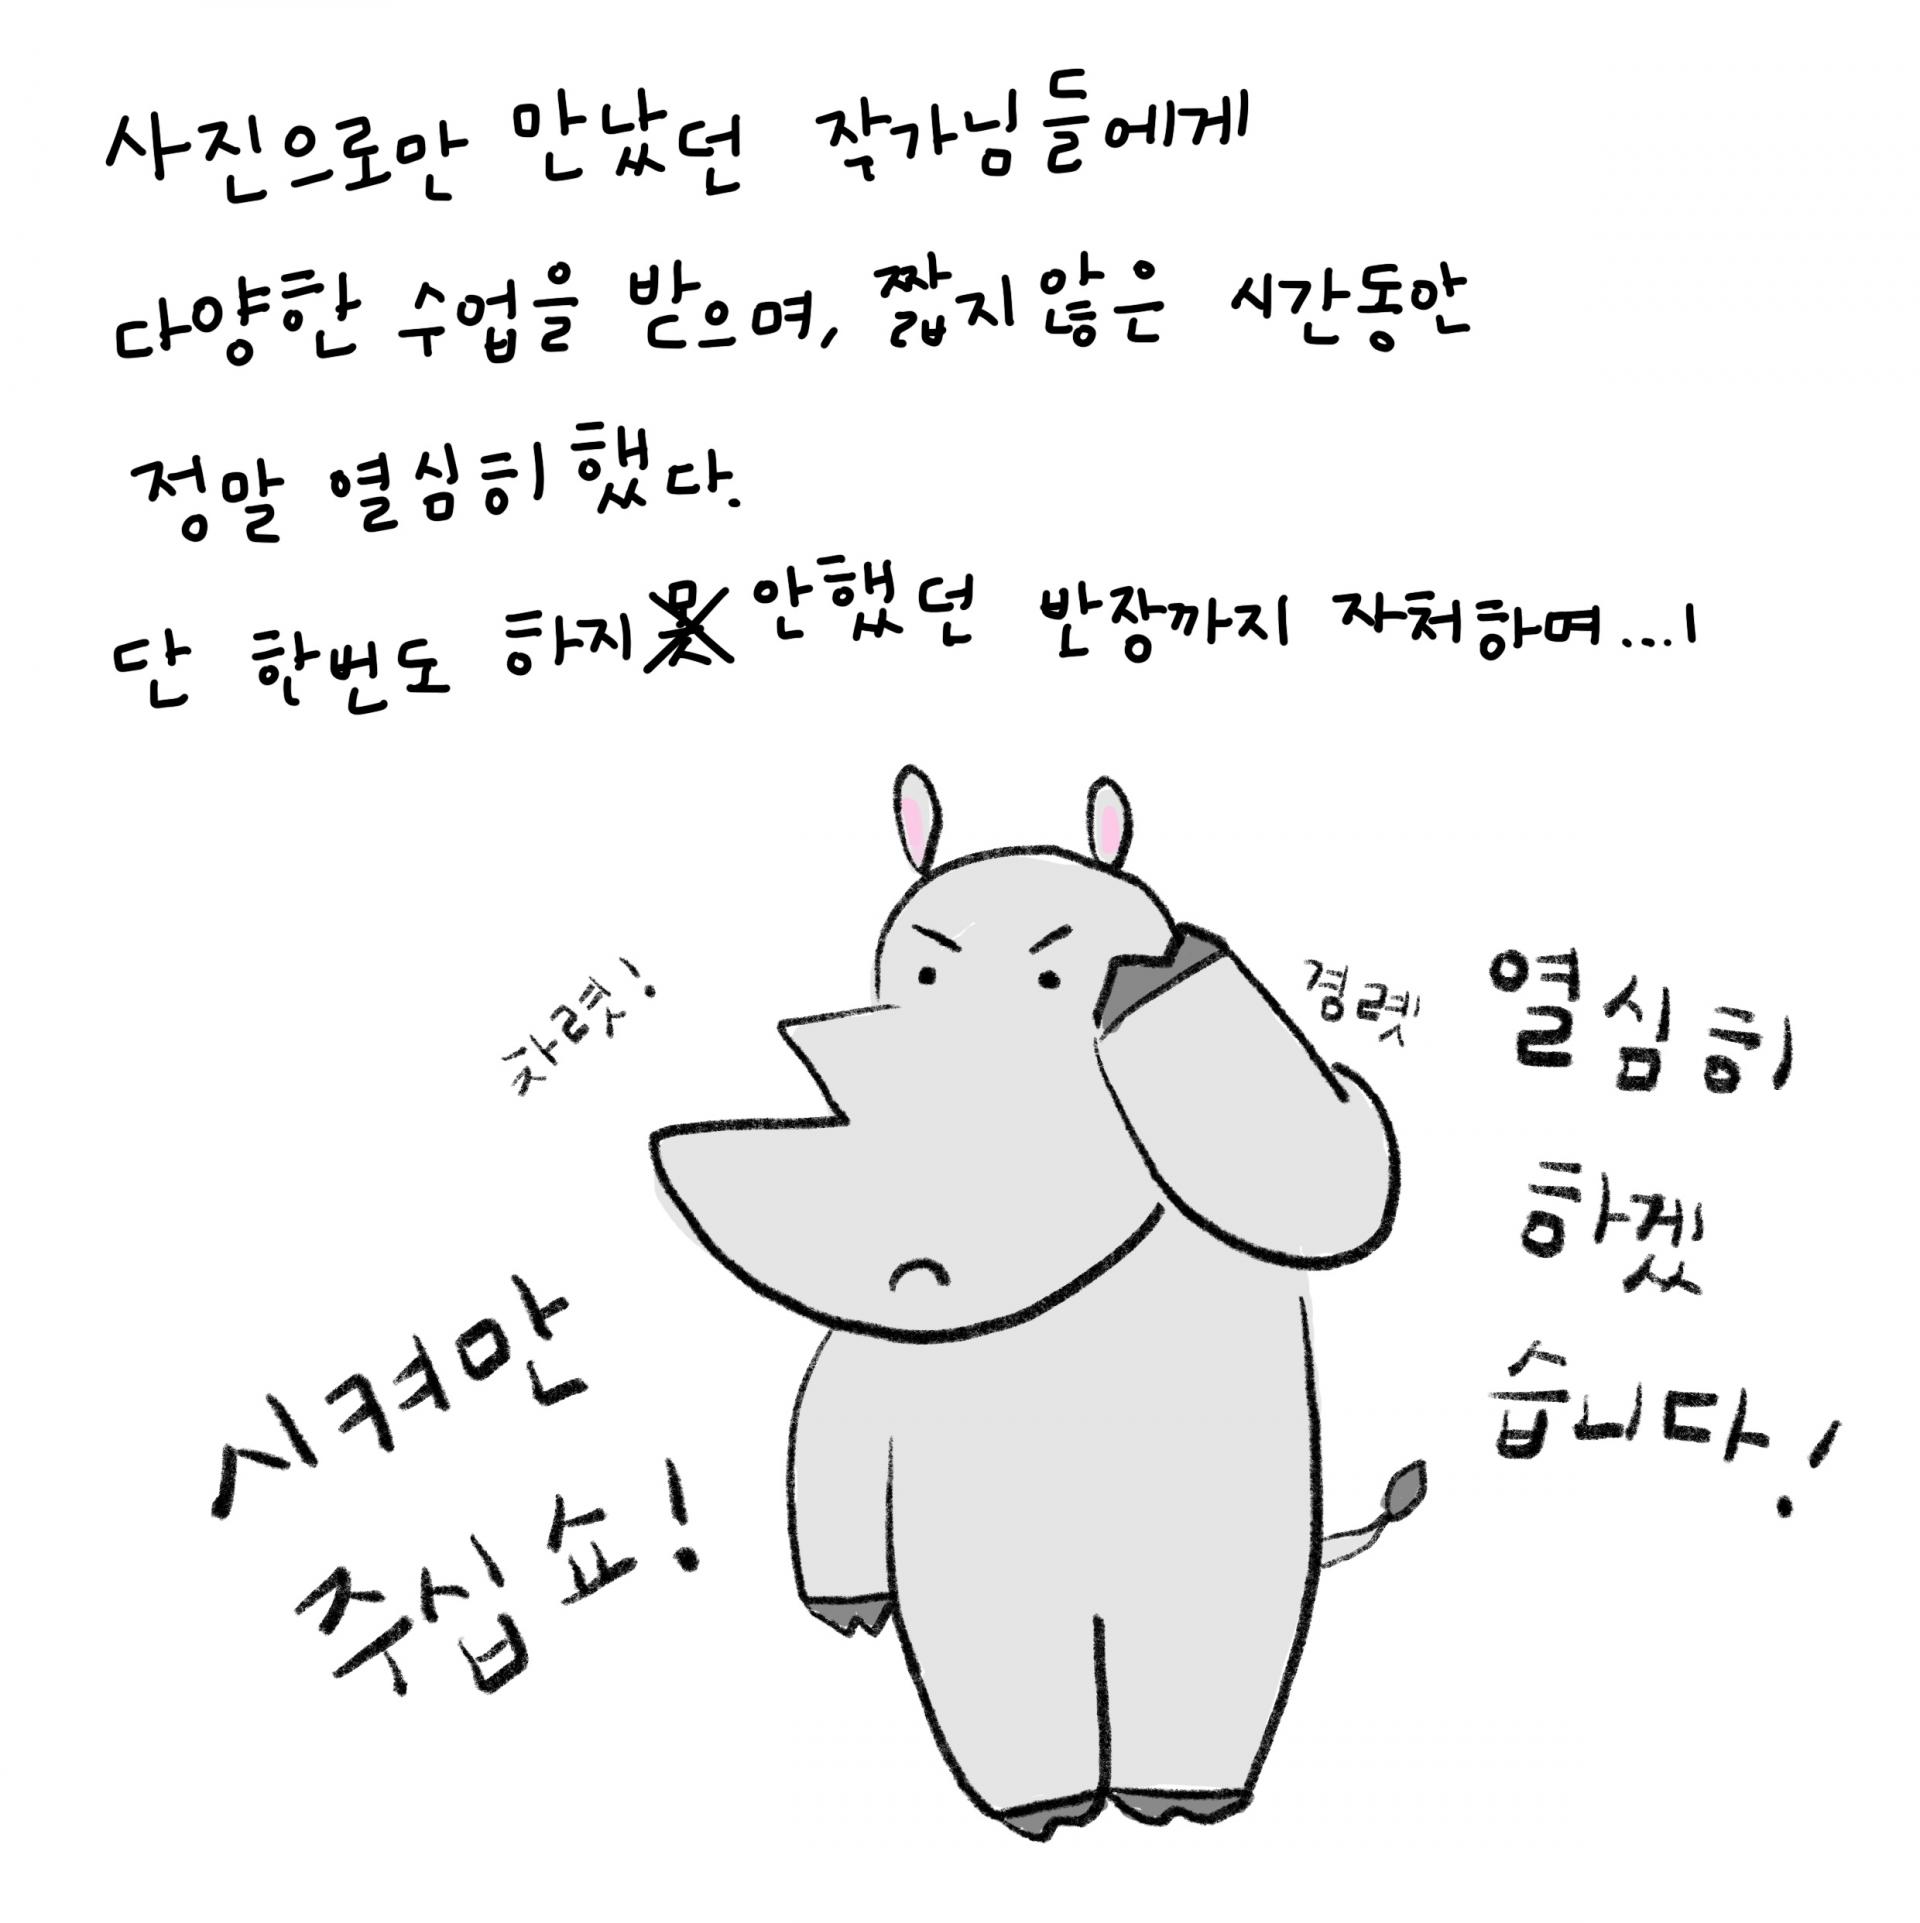 사진으로만 만났던 작가님들에게
다양한 수업을 받으며, 짧지않은 시간동안
정말 열심히 했다.
단 한번도 하지 안했던 반장까지 자처하며...!
차렷!
경롓
열심히
하겠
습니다!
시켜만
주십쇼!